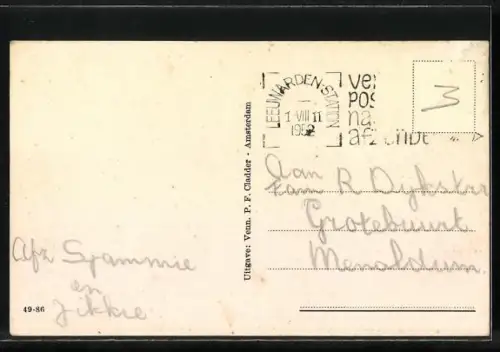 LEEUWARDEN-STATION
1 VIII 11
1952
ver
pos
na
afzende
Aan
Fam R Dykstra
Grotebuurt
Menaldum
Afz
en
Jikkie
Uitgave: Venn. P. F. Cladder - Amsterdam
49-86